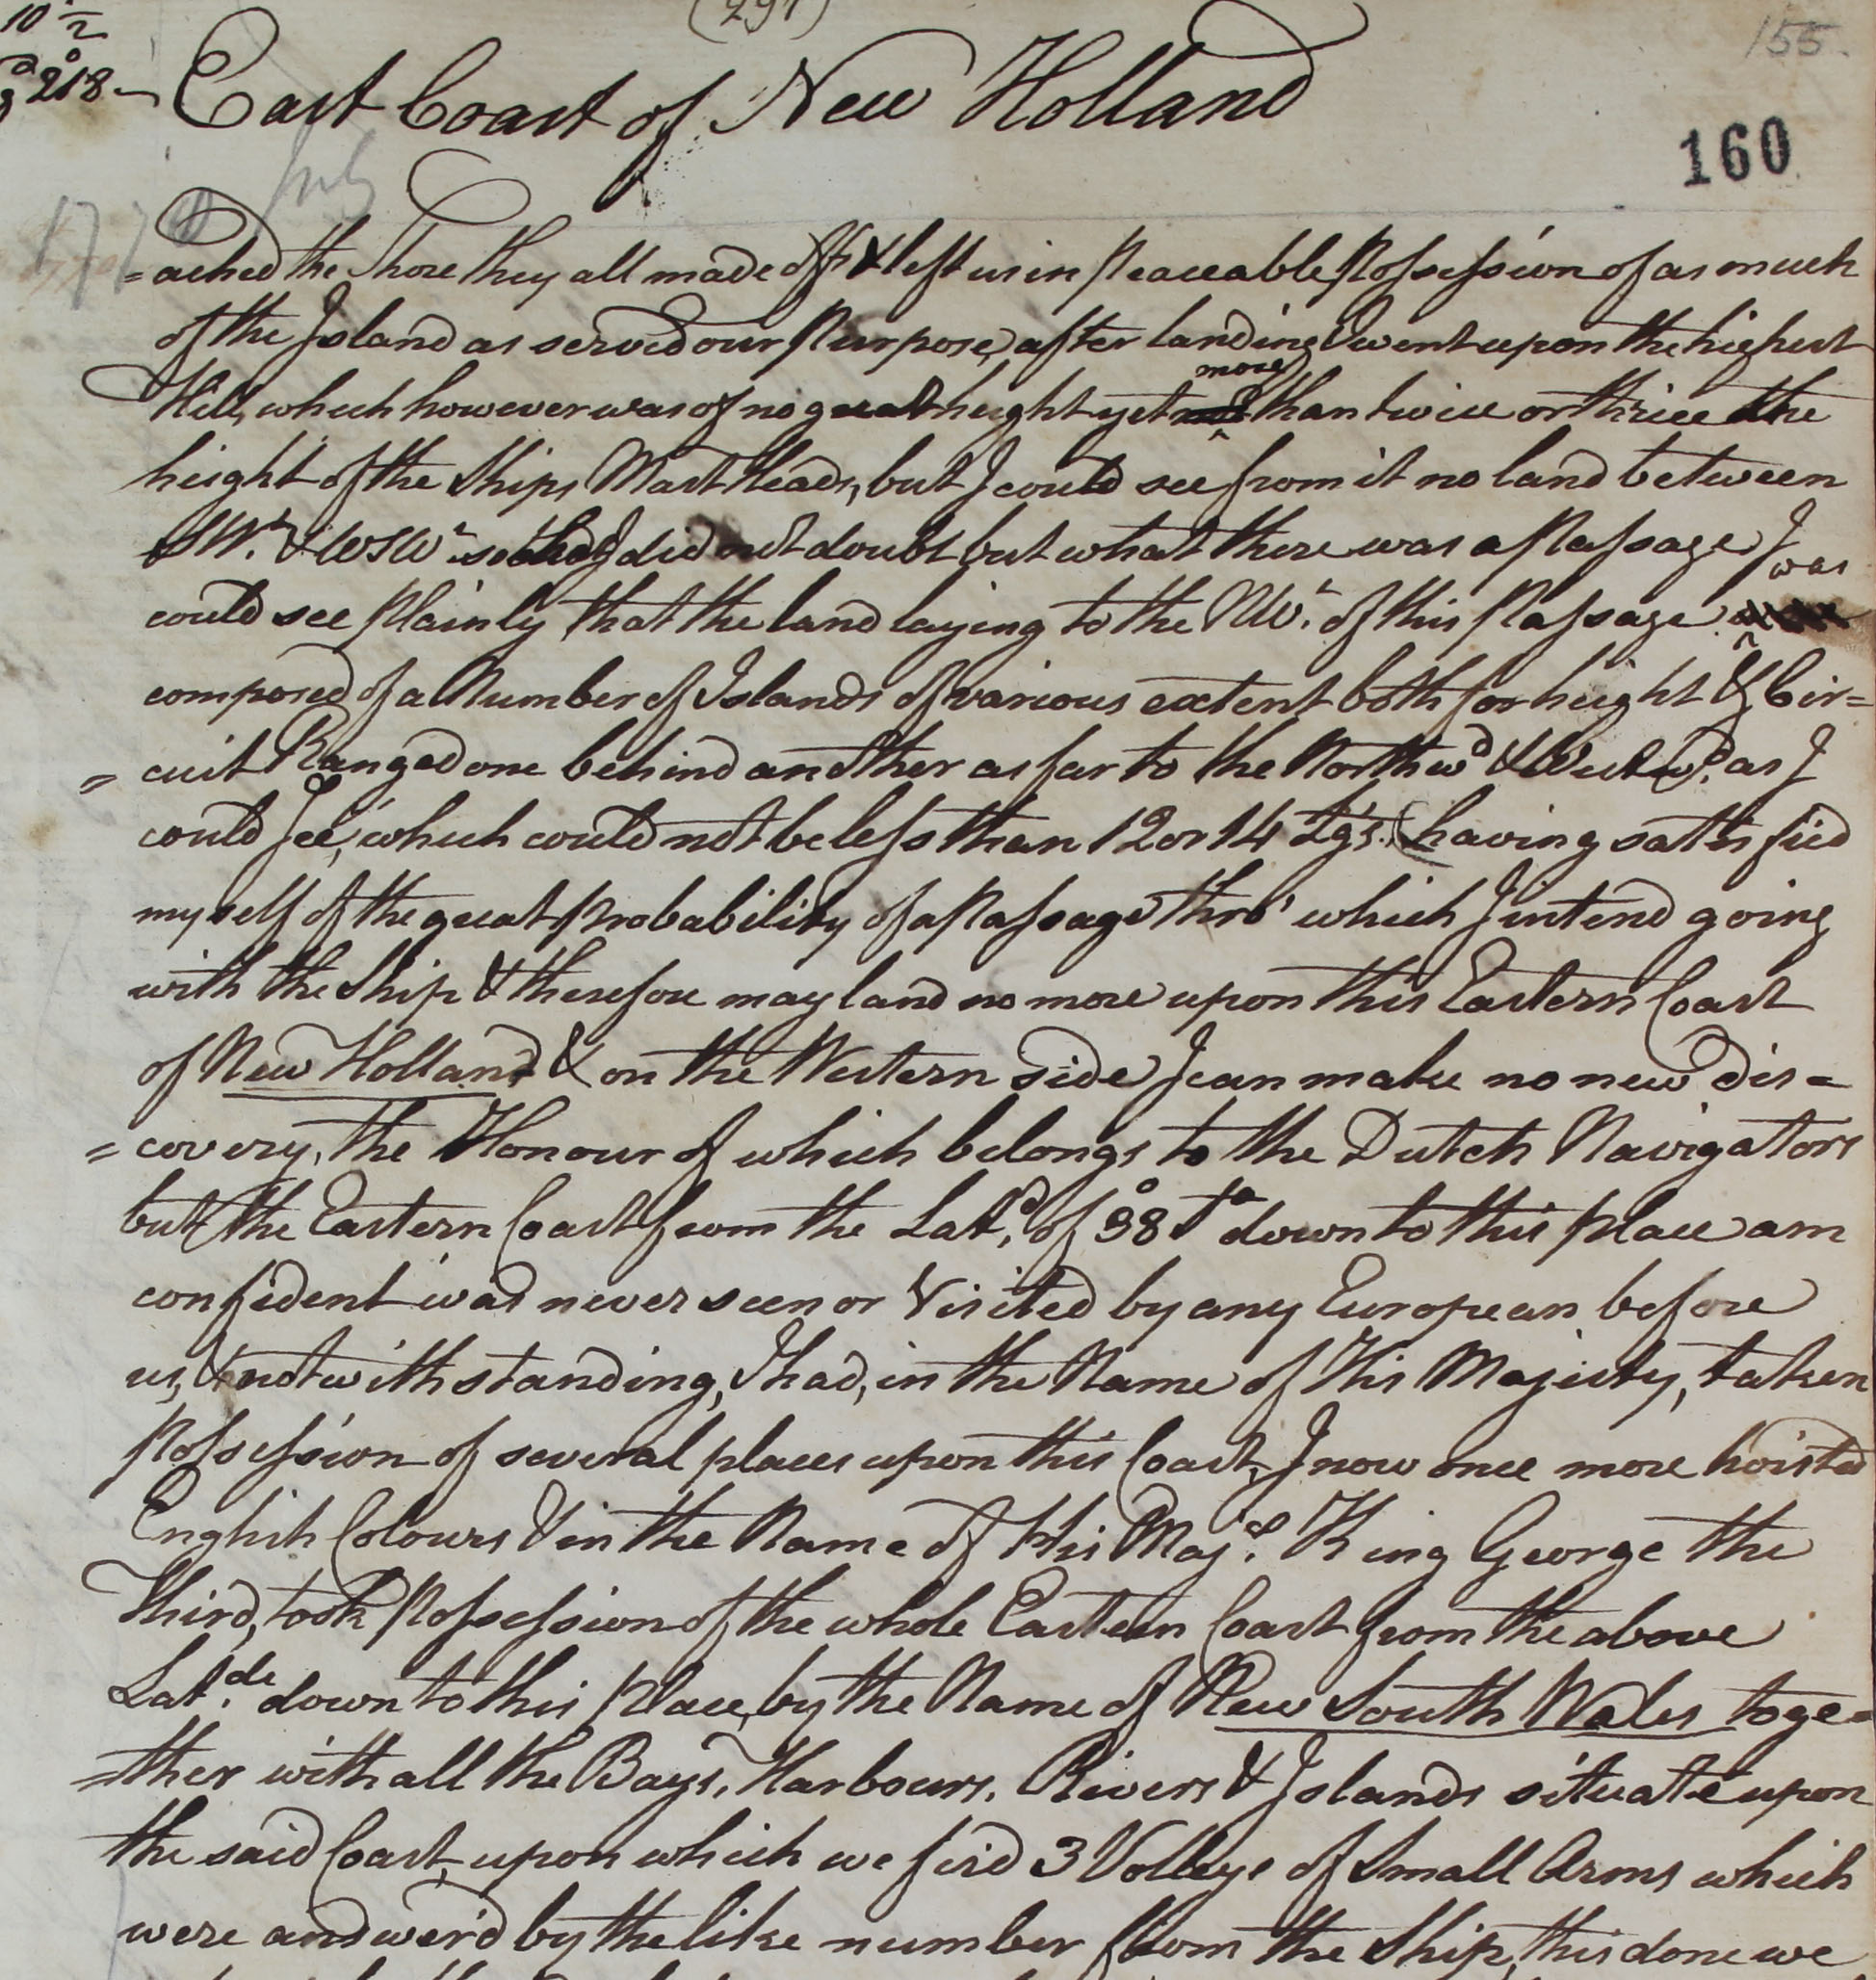 (297)
155.
10 ½
218
East Coast of New Holland
160
July
177
=ached the Shore they all made off & left us in Peaceable Possession of as much
of the Island as served our Purpose, after landing I went upon the highest
more
Hill, which however was of no great height yet than twice or thrice the
height of the Ships Mast Heads, but I could see from it no land between
SWt. & WSWt so that I did not doubt but what there was a Passage, I
was
could see plainly that the land laying to the NWt. of this Passage
composed of a Number of Islands of various extent both for height & Cir=
=cuit Ranged one behind another as far to the Northwd & Westwd. as I
could See, which could not be less than 12 or 14 Lgs. having satisfied
myself of the great Probability of a Passage thro' which I intend going
with the Ship & therefore may land no more upon this Eastern Coast
of New Holland & on the Western side I can make no new dis=
=covery, the Honour of which belongs to the Dutch Navigators
but the Eastern Coast from the Latd. of 38° So down to this place am
confident was never seen or Visited by any European before
us, & notwithstanding, I had, in the Name of His Majesty, taken
Possession of several places upon this Coast, I now once more hoisted
English Colours & in the Name of His Maj.y King George the
Third, took Possession of the whole Eastern Coast from the above
Lat.de down to this Place, by the Name of New South Wales toge=
=ther with all the Bays, Harbours, Rivers & Islands situate upon
the said Coast, upon which we fir'd 3 Volleys of Small Arms which
were answer'd by the like number from the Ship, this done we